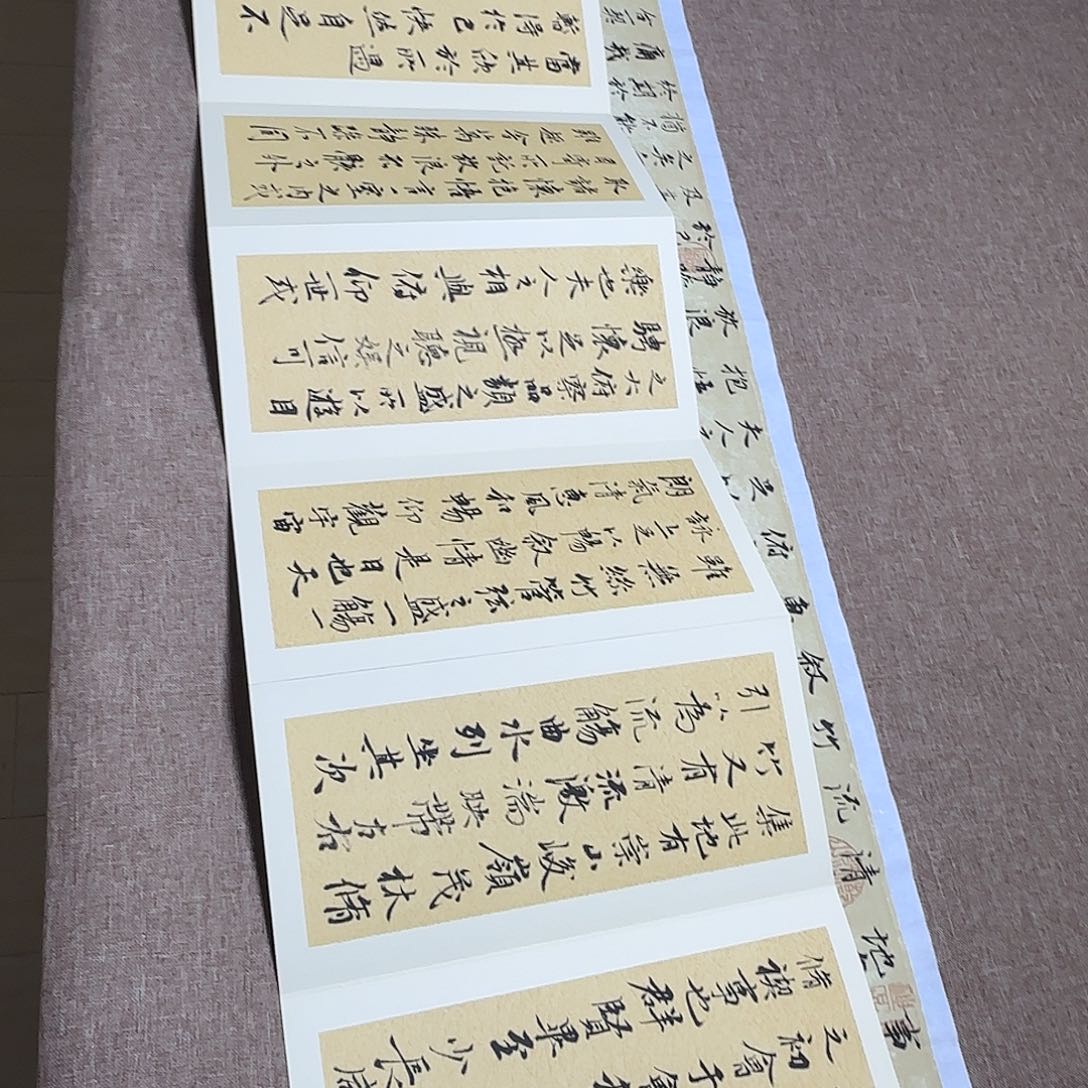 之初會于會
脩禊事也群賢畢至少長咸
集此地有崇山峻嶺茂林脩
竹又有清流激湍映帶左右
引以為流觴曲水列坐其次
雖無絲竹管弦之盛一觴一
詠亦足以暢敘幽情是日也天
朗氣清惠風和暢仰觀宇宙
之大俯察品類之盛所以遊目
騁懷足以極視聽之娛信可
樂也夫人之相與俯仰一世或
取諸懷抱悟言一室之內或
因寄所託放浪形骸之外
雖趣舍萬殊靜躁不同
當其欣於所遇
暫得於己快然自足不
事
地
清
流
竹
敘
惠
俯
夫人
抱悟
放浪
靜